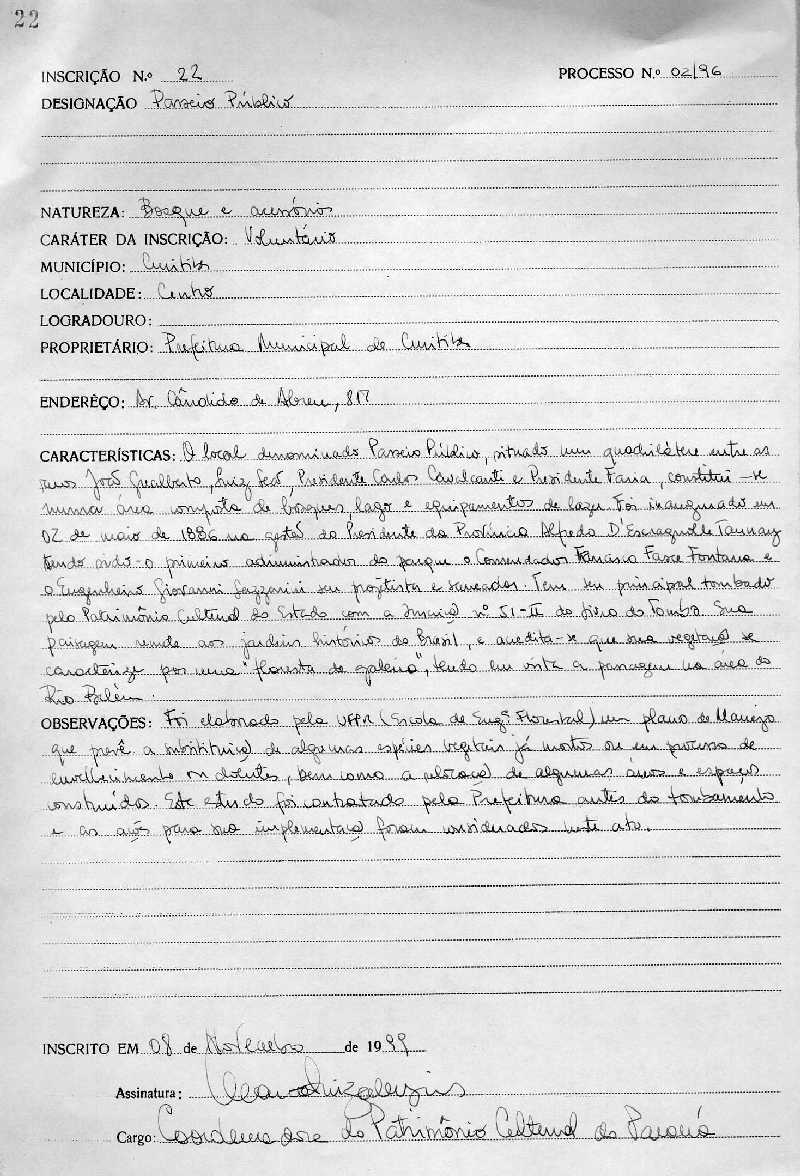 22
INSCRIÇÃO N.º 22 PROCESSO N.º 02/96
DESIGNAÇÃO Passeio Público
NATUREZA: Bosque e acessórios
CARÁTER DA INSCRIÇÃO: Voluntário
MUNICÍPIO: Curitiba
LOCALIDADE: Centro
LOGRADOURO:
PROPRIETÁRIO: Prefeitura Municipal de Curitiba
ENDERÊÇO: Av. Cândido de Abreu, 817
CARACTERÍSTICAS: O local denominado Passeio Público, situado num quadrilátero entre as
ruas João Gualberto, Luiz Leão, Presidente Carlos Cavalcanti e Presidente Faria, constitui-se
numa área composta de bosques, lago e equipamentos de lazer. Foi inaugurado em
02 de maio de 1886 na gestão do Presidente da Província Alfredo D'Escragnolle Taunay
tendo sido o primeiro administrador do parque o Comendador Francisco Fasce Fontana e
o Engenheiro Giovanni Lazzarini seu projetista e saneador. Tem seu principal tombado
pelo Patrimônio Cultural do Estado com a Inscrição nº 51-II do Livro do Tombo. Sua
paisagem remete aos jardins históricos do Brasil, e acredita-se que sua vegetação se
caracterize por uma "floresta de galeria", tendo em vista a passagem na área do
Rio Belém.
OBSERVAÇÕES: Foi elaborado pela UFPR (Escola de Engª Florestal) um plano de Manejo
que prevê a substituição de algumas espécies vegetais já mortas ou em processo de
envelhecimento ou doentes, bem como a de algumas áreas e espaços
construídos. Este estudo foi contratado pela Prefeitura antes do tombamento
e as ações para sua implementação foram consideradas neste ato.
INSCRITO EM 08 de Novembro de 1999
Assinatura:
Cargo: Coordenadora do Patrimônio Cultural do Paraná